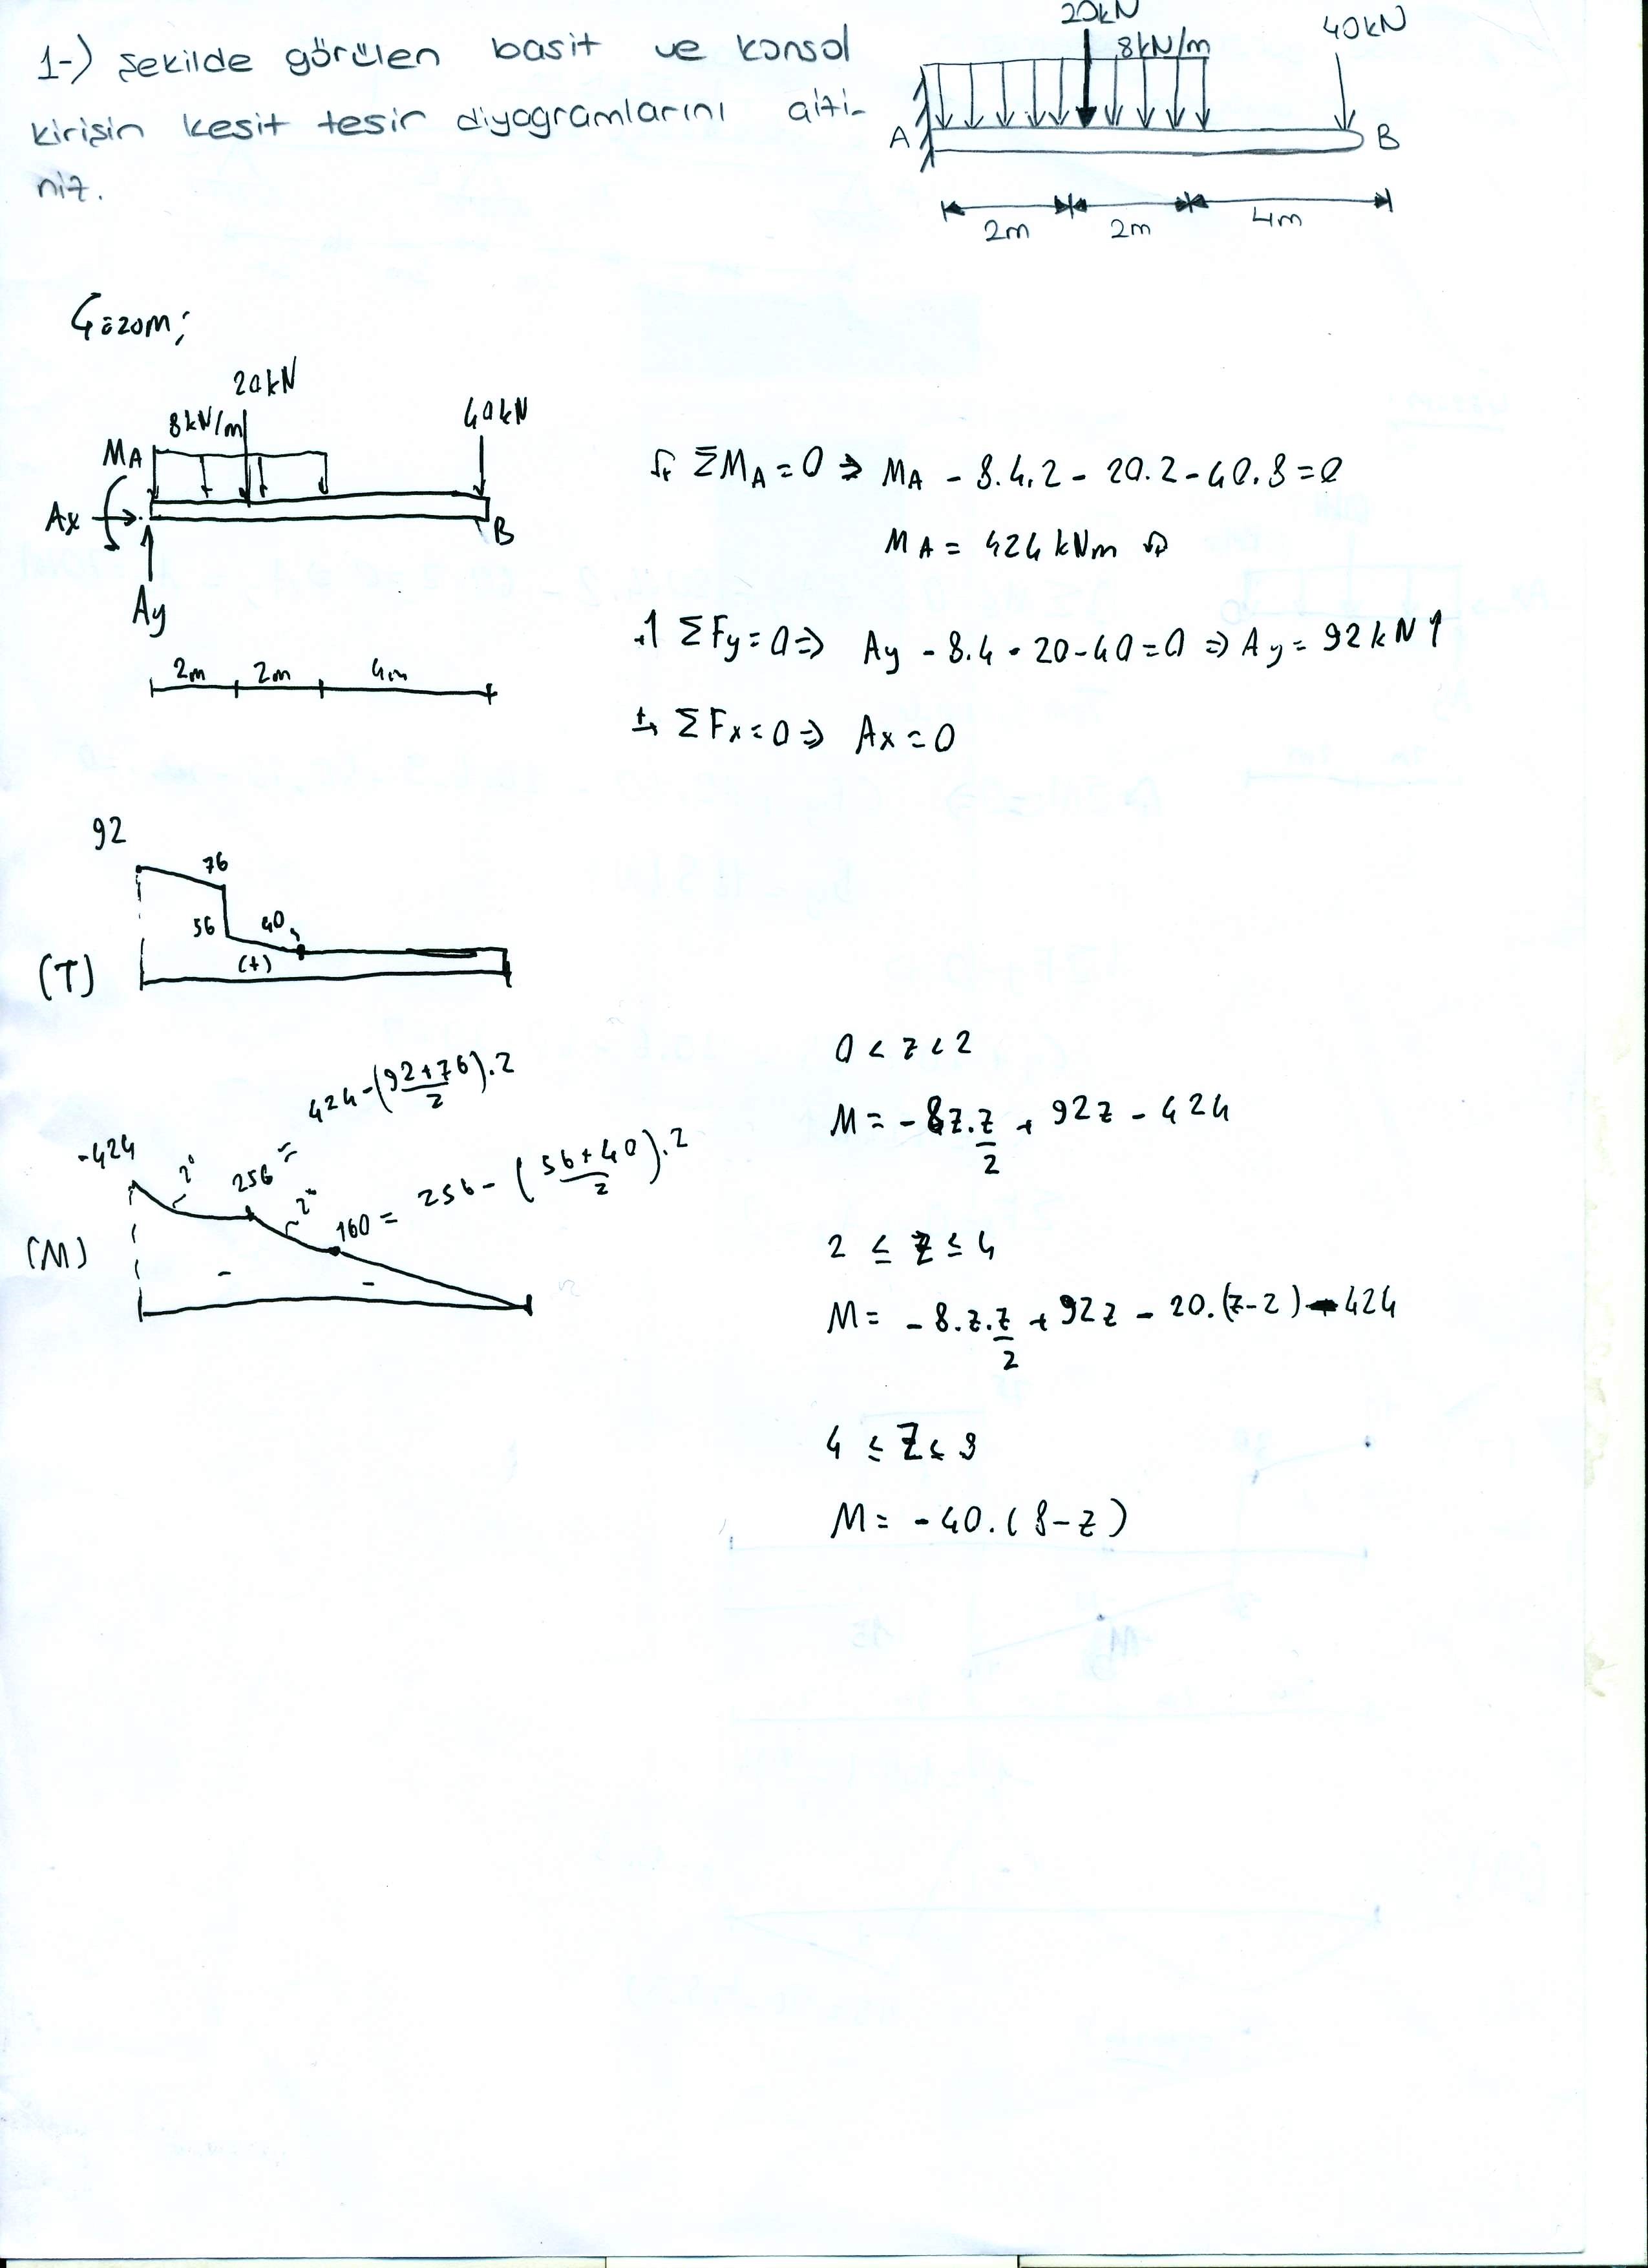 1-) Şekilde görülen basit ve konsol
kirişin kesit tesir diyagramlarını çizi-
niz.
20kN
8kN/m
40kN
A
B
2m
2m
4m
Çözüm;
20kN
8kN/m
40kN
MA
Ax
B
Ay
2m 2m 4m
+ ΣMA = 0 ⇒ MA - 8.4.2 - 20.2 - 40.8 = 0
MA = 424 kNm
+↑ ΣFy = 0 ⇒ Ay - 8.4 - 20 - 40 = 0 ⇒ Ay = 92 kN ↑
+→ ΣFx = 0 ⇒ Ax = 0
92
76
56
40
(+)
(T)
-424
2°
256 = 424 - (92+76)/2 . 2
2°
160 = 256 - (56+40)/2 . 2
(M)
-
-
0 < z < 2
M = - 8z.z/2 + 92z - 424
2 ≤ z ≤ 4
M = - 8.z.z/2 + 92z - 20.(z-2) - 424
4 ≤ z ≤ 8
M = - 40.(8-z)